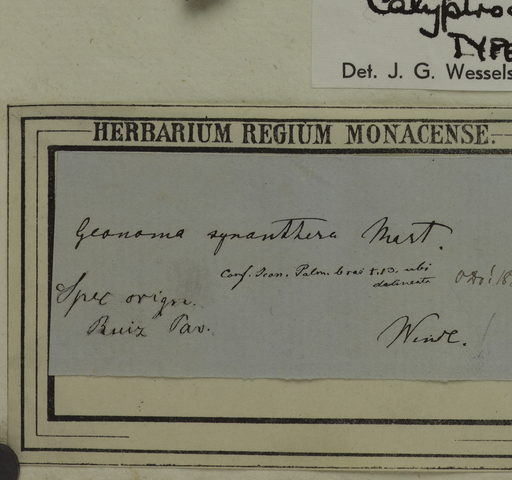 Calyptro
TYPE
Det. J. G. Wessels
HERBARIUM REGIUM MONACENSE.
Geonoma synanthera Mart.
Conf. Icon. Palm. bras t. 13. ubi
delineata
Spec origin.
Ruiz Pav.
Wendl.